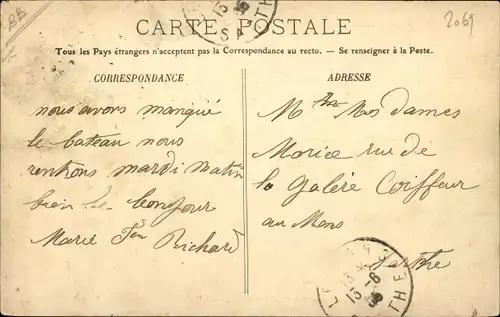 BB
CARTE POSTALE
2069
Tous les Pays étrangers n'acceptent pas la Correspondance au recto. — Se renseigner à la Poste.
CORRESPONDANCE
nous avons manqué
le bateau nous
rentrons mardi matin
bien le bonjour
Marie Richard
ADRESSE
Mesdames
Morice rue de
la Galère Coiffeur
au Mans
Sarthe